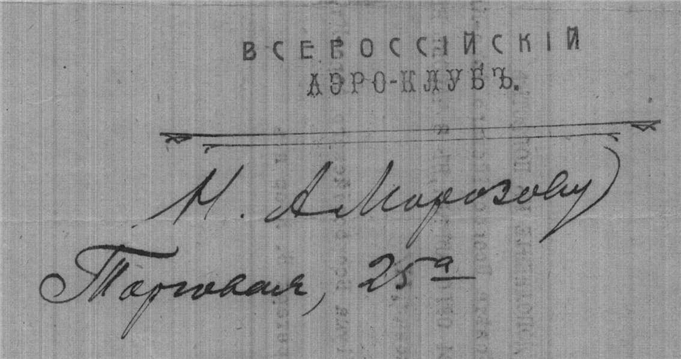 ВСЕРОССІЙСКІЙ
АЭРО-КЛУБЪ.
Н. А Морозову
Торговая, 25а